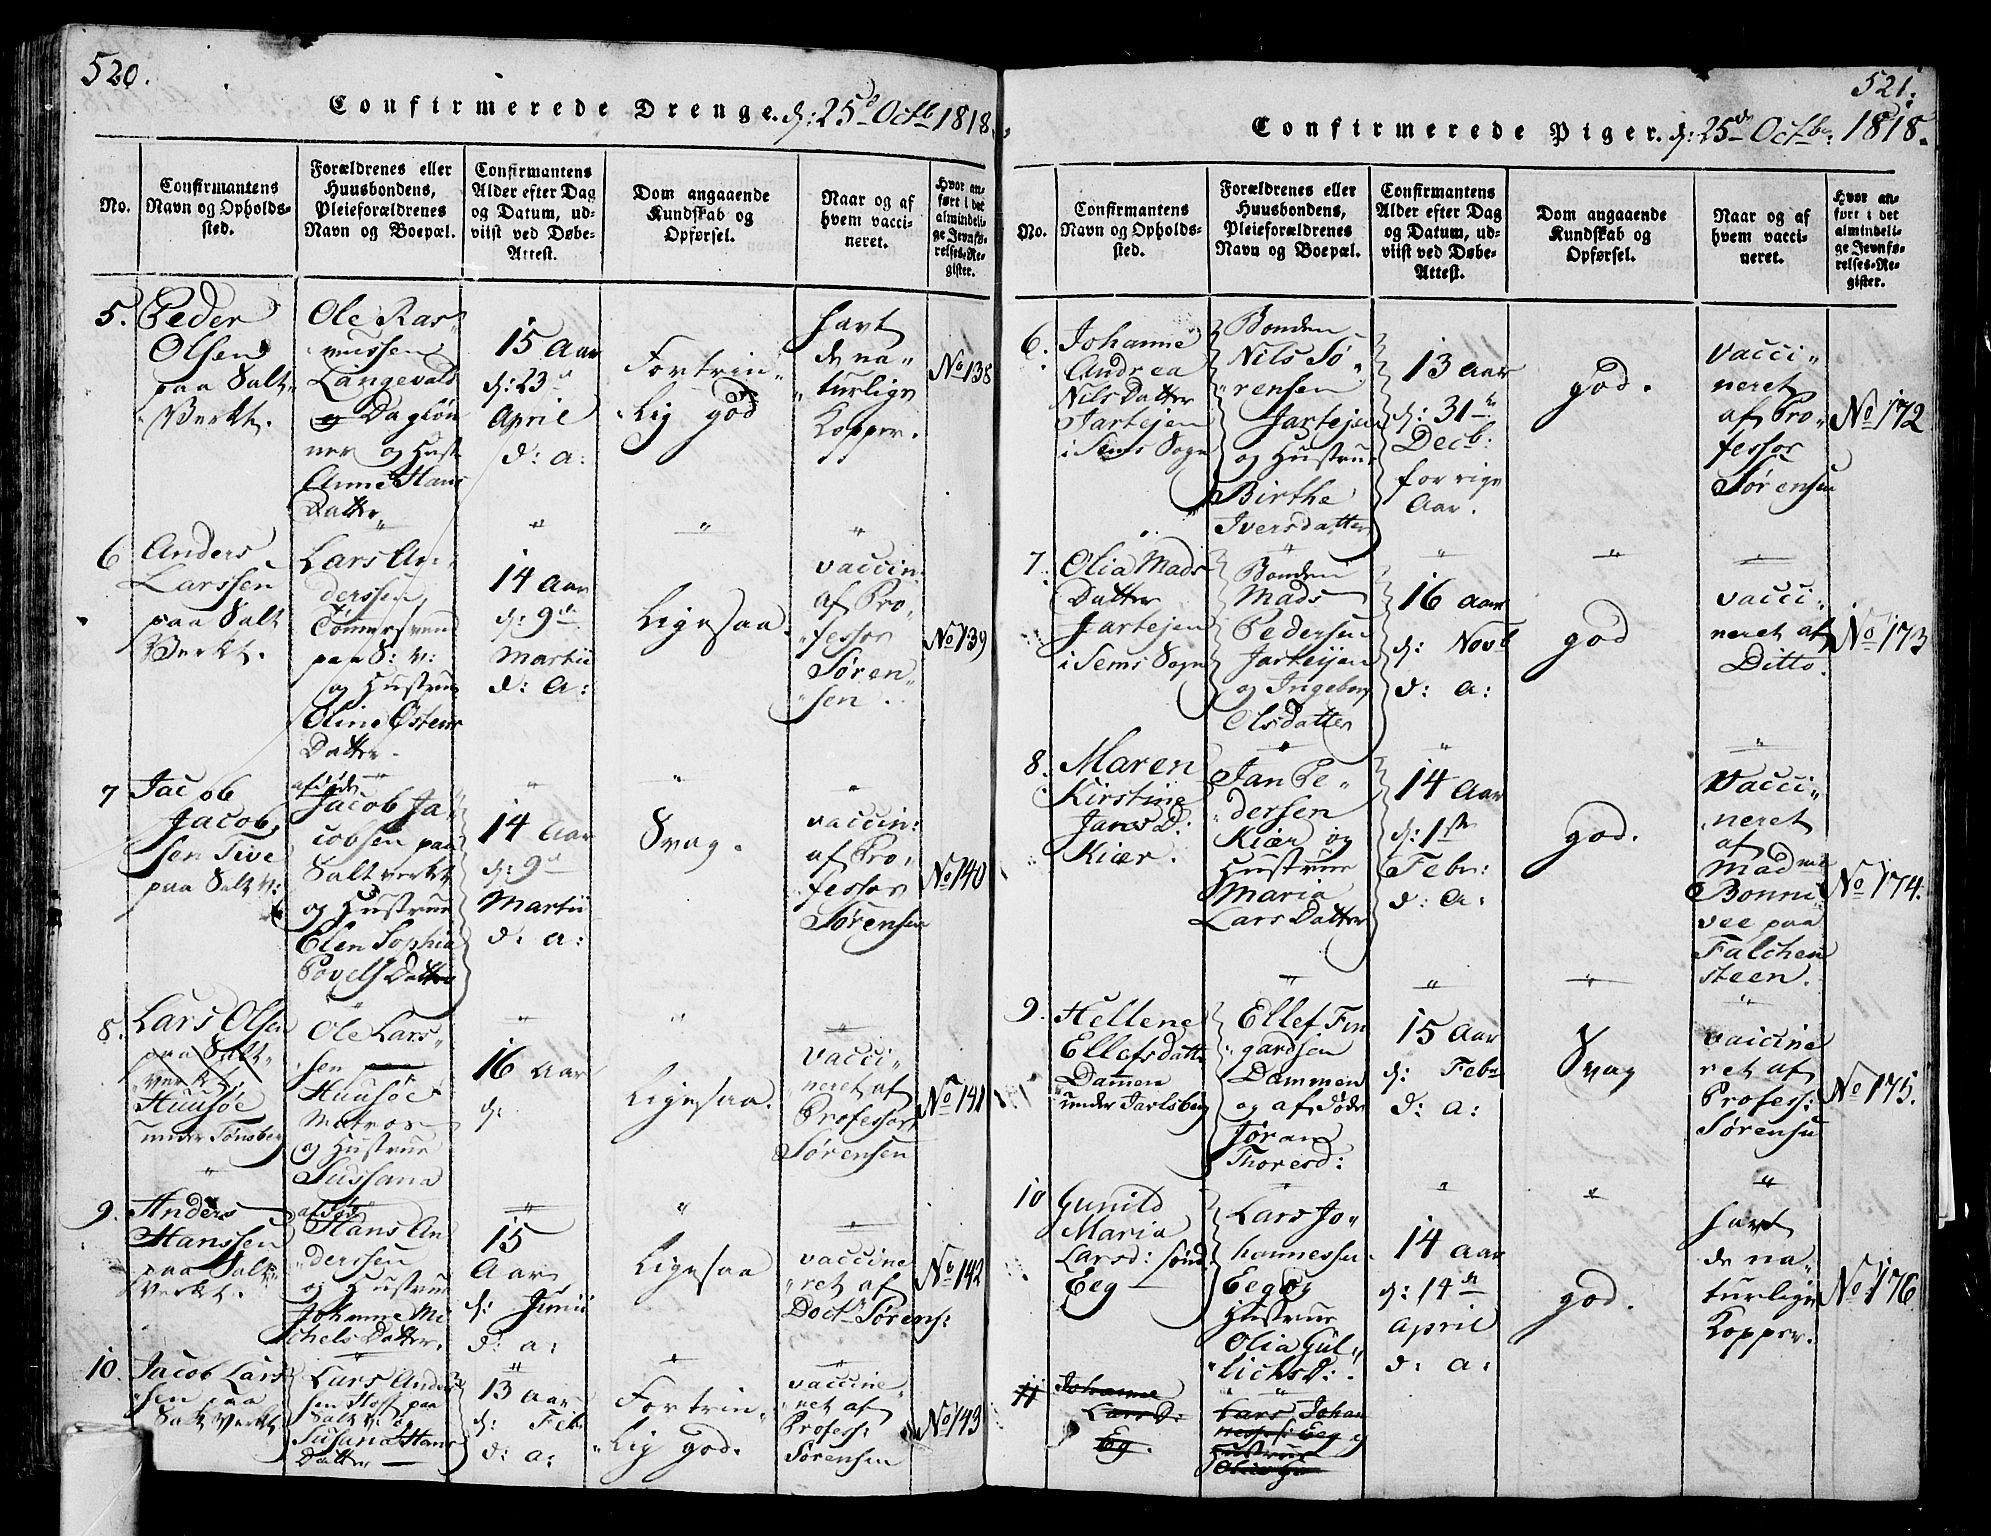 520.
Confirmerede Drenge. d: 25d Octb 1818.
No.
Confirmantens
Navn og Opholds-
sted.
Forældrenes eller
Huusbondens,
Pleieforældrenes
Navn og Boepæl.
Confirmantens
Alder efter Dag
og Datum, ud-
viist ved Døbe-
Attest.
Dom angaaende
Kundskab og
Opførsel.
Naar og af
hvem vacci-
neret.
Hvor an-
ført i det
almindeli-
ge Jevnfø-
relses-Re-
gister.
5.
Peder
Olsen
paa Salt-
Verkt.
Ole Ras-
mussen
Langevald
og Dagløn
ner og Hust
Anne Hans
Datter
15 Aar
d: 23d
April
d: a:
Fortrin-
lig god
havt
de na-
turlige
Kopper.
No 138
6
Anders
Larssen
paa Salt
Verkt.
Lars An-
derssen
Tømersvend
paa S: V:
og Hustrue
Oline Østens
Datter.
14 Aar
d: 9d
Martii
d: a:
Ligesaa.
vaccin.
af Pro-
fessor
Søren-
sen.
No 139
7
Jacob
Jacob-
sen Tive
paa Salt V:
afdøde
Jacob Ja-
cobsen paa
Saltverkt
og Hustrue
Elen Sophia
Povels Datter
14 Aar
d: 9d
Martii
d: a:
Svag.
vaccin:
af Pro-
fessor
Sørensen
No 140
8.
Lars Olsen
paa Salt-
verkt.
Huusøe
under Tønsberg
Ole Lars-
sen paa
Huusøe
Matros
og Hustrue
Sussana
16 Aar
d:
Ligesaa.
vacci-
neret af
Professor
Sørensen
No 141
9.
Anders
Hanssen
paa Salt
Verkt.
afdøde
Hans An
derssen
og Hustrue
Johanne Mi
chels Datter.
15
Aar
d: Junii
d: a:
Ligesaa
vaccine
ret af
Doct. Sørens:
No 142
10.
Jacob Lars
sen paa
Salt Verkt
Lars Ander
sen Hoff paa
Salt V: og
Susana Hans
Datter
13 Aar
d: Feb
d: a:
Fortrin-
lig god.
vaccine-
ret af
Profess:
Sørensen
No 143
521.
Confirmerede Piger. d: 25de Octbr: 1818.
No.
Confirmantens
Navn og Opholds-
sted.
Forældrenes eller
Huusbondens,
Pleieforældrenes
Navn og Boepæl.
Confirmantens
Alder efter Dag
og Datum, ud-
viist ved Døbe-
Attest.
Dom angaaende
Kundskab og
Opførsel.
Naar og af
hvem vacci-
neret.
Hvor an-
ført i det
almindeli-
ge Jevnfø-
relses-Re-
gister.
6.
Johanne
Andrea
Nils Datter
Jartejen
i Sems Sogn
Bonden
Nils Sø-
rensen
Jartejen
og Hustrue
Birthe
Iversdatter
13 Aar
d: 31te
Decb:
forrige
Aar.
god.
Vacci-
neret
af Pro-
fessor
Sørensen
No 172
7.
Olia Mads
Datter
Jartejen
i Sems Sogn
Bonden
Mads
Pedersen
Jarteijen
og Ingeborg
Olsdatter
16 Aar
d: Novb
d: a:
god
vacci-
neret af
Ditto.
No 173
8.
Maren
Kirstine
Jans D:
Kiær.
Jan Pe-
dersen
Kiær og
Hustrue
Maria
Lars Datter
14 Aar
d: 1ste
Febr:
d: a:
god.
Vacci-
neret
af
Madme
Bonne
vee paa
Falchen
steen.
No 174.
9.
Hellene
Ellefsdatter
Dammen
under Jarlsberg
Ellef Fin
gardsen
Dammen
og afdøde
Jøran
Thoresd:
15 Aar
d: Febr
d: a:
Svag
vaicine
ret af
Profess:
Sørensen
No 175.
10
Gunild
Maria
Larsd: sønd
Eeg
Lars Jo-
hannessen
Eeg og
Hustrue
Olia Gul-
lichs D:
14 Aar
d: 14de
April
d: a:
god.
havt
de na-
turlige
Kopper.
No 176
11
Johanne
Lars D:
Eg.
Lars Johan
ness: Eeg og
Hustrue